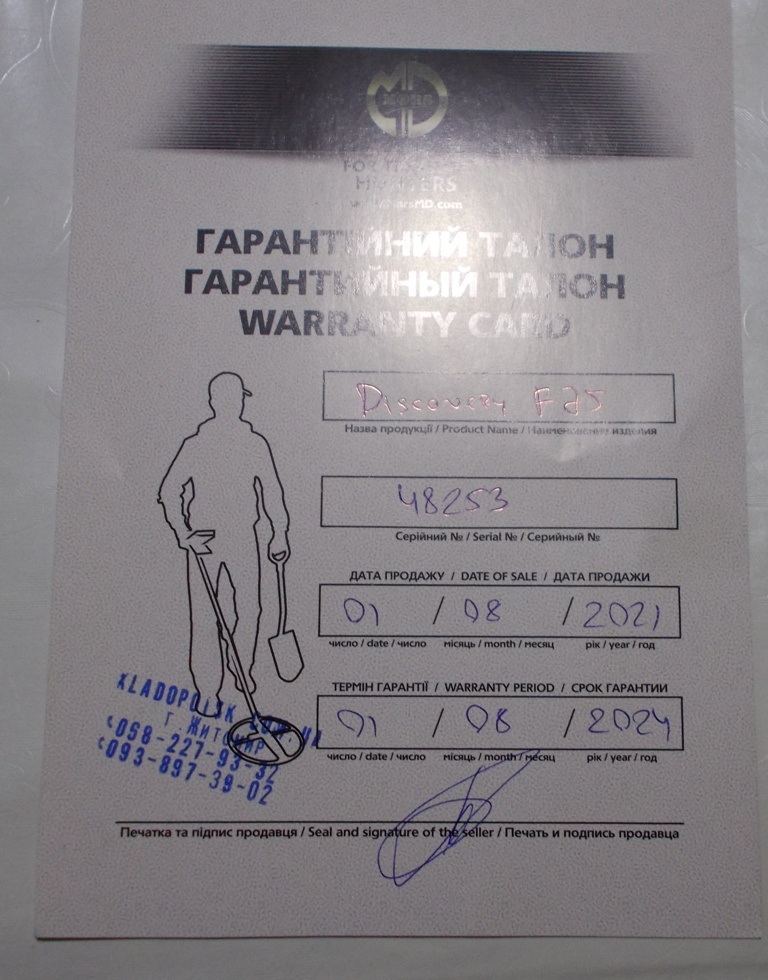 MD
FOR TREASURE
HUNTERS
ГАРАНТІЙНИЙ ТАЛОН
ГАРАНТИЙНЫЙ ТАЛОН
WARRANTY CARD
Discovery F75
Назва продукції / Product Name / Наименование изделия
48253
Серійний № / Serial № / Серийный №
ДАТА ПРОДАЖУ / DATE OF SALE / ДАТА ПРОДАЖИ
01 / 08 / 2021
число / date / число місяць / month / месяц рік / year / год
ТЕРМІН ГАРАНТІЇ / WARRANTY PERIOD / СРОК ГАРАНТИИ
01 / 08 / 2024
число / date / число місяць / month / месяц рік / year / год
KLADOPOISK.COM.UA
г. Житомир
093-897-39-02
Печатка та підпис продавця / Seal and signature of the seller / Печать и подпись продавца